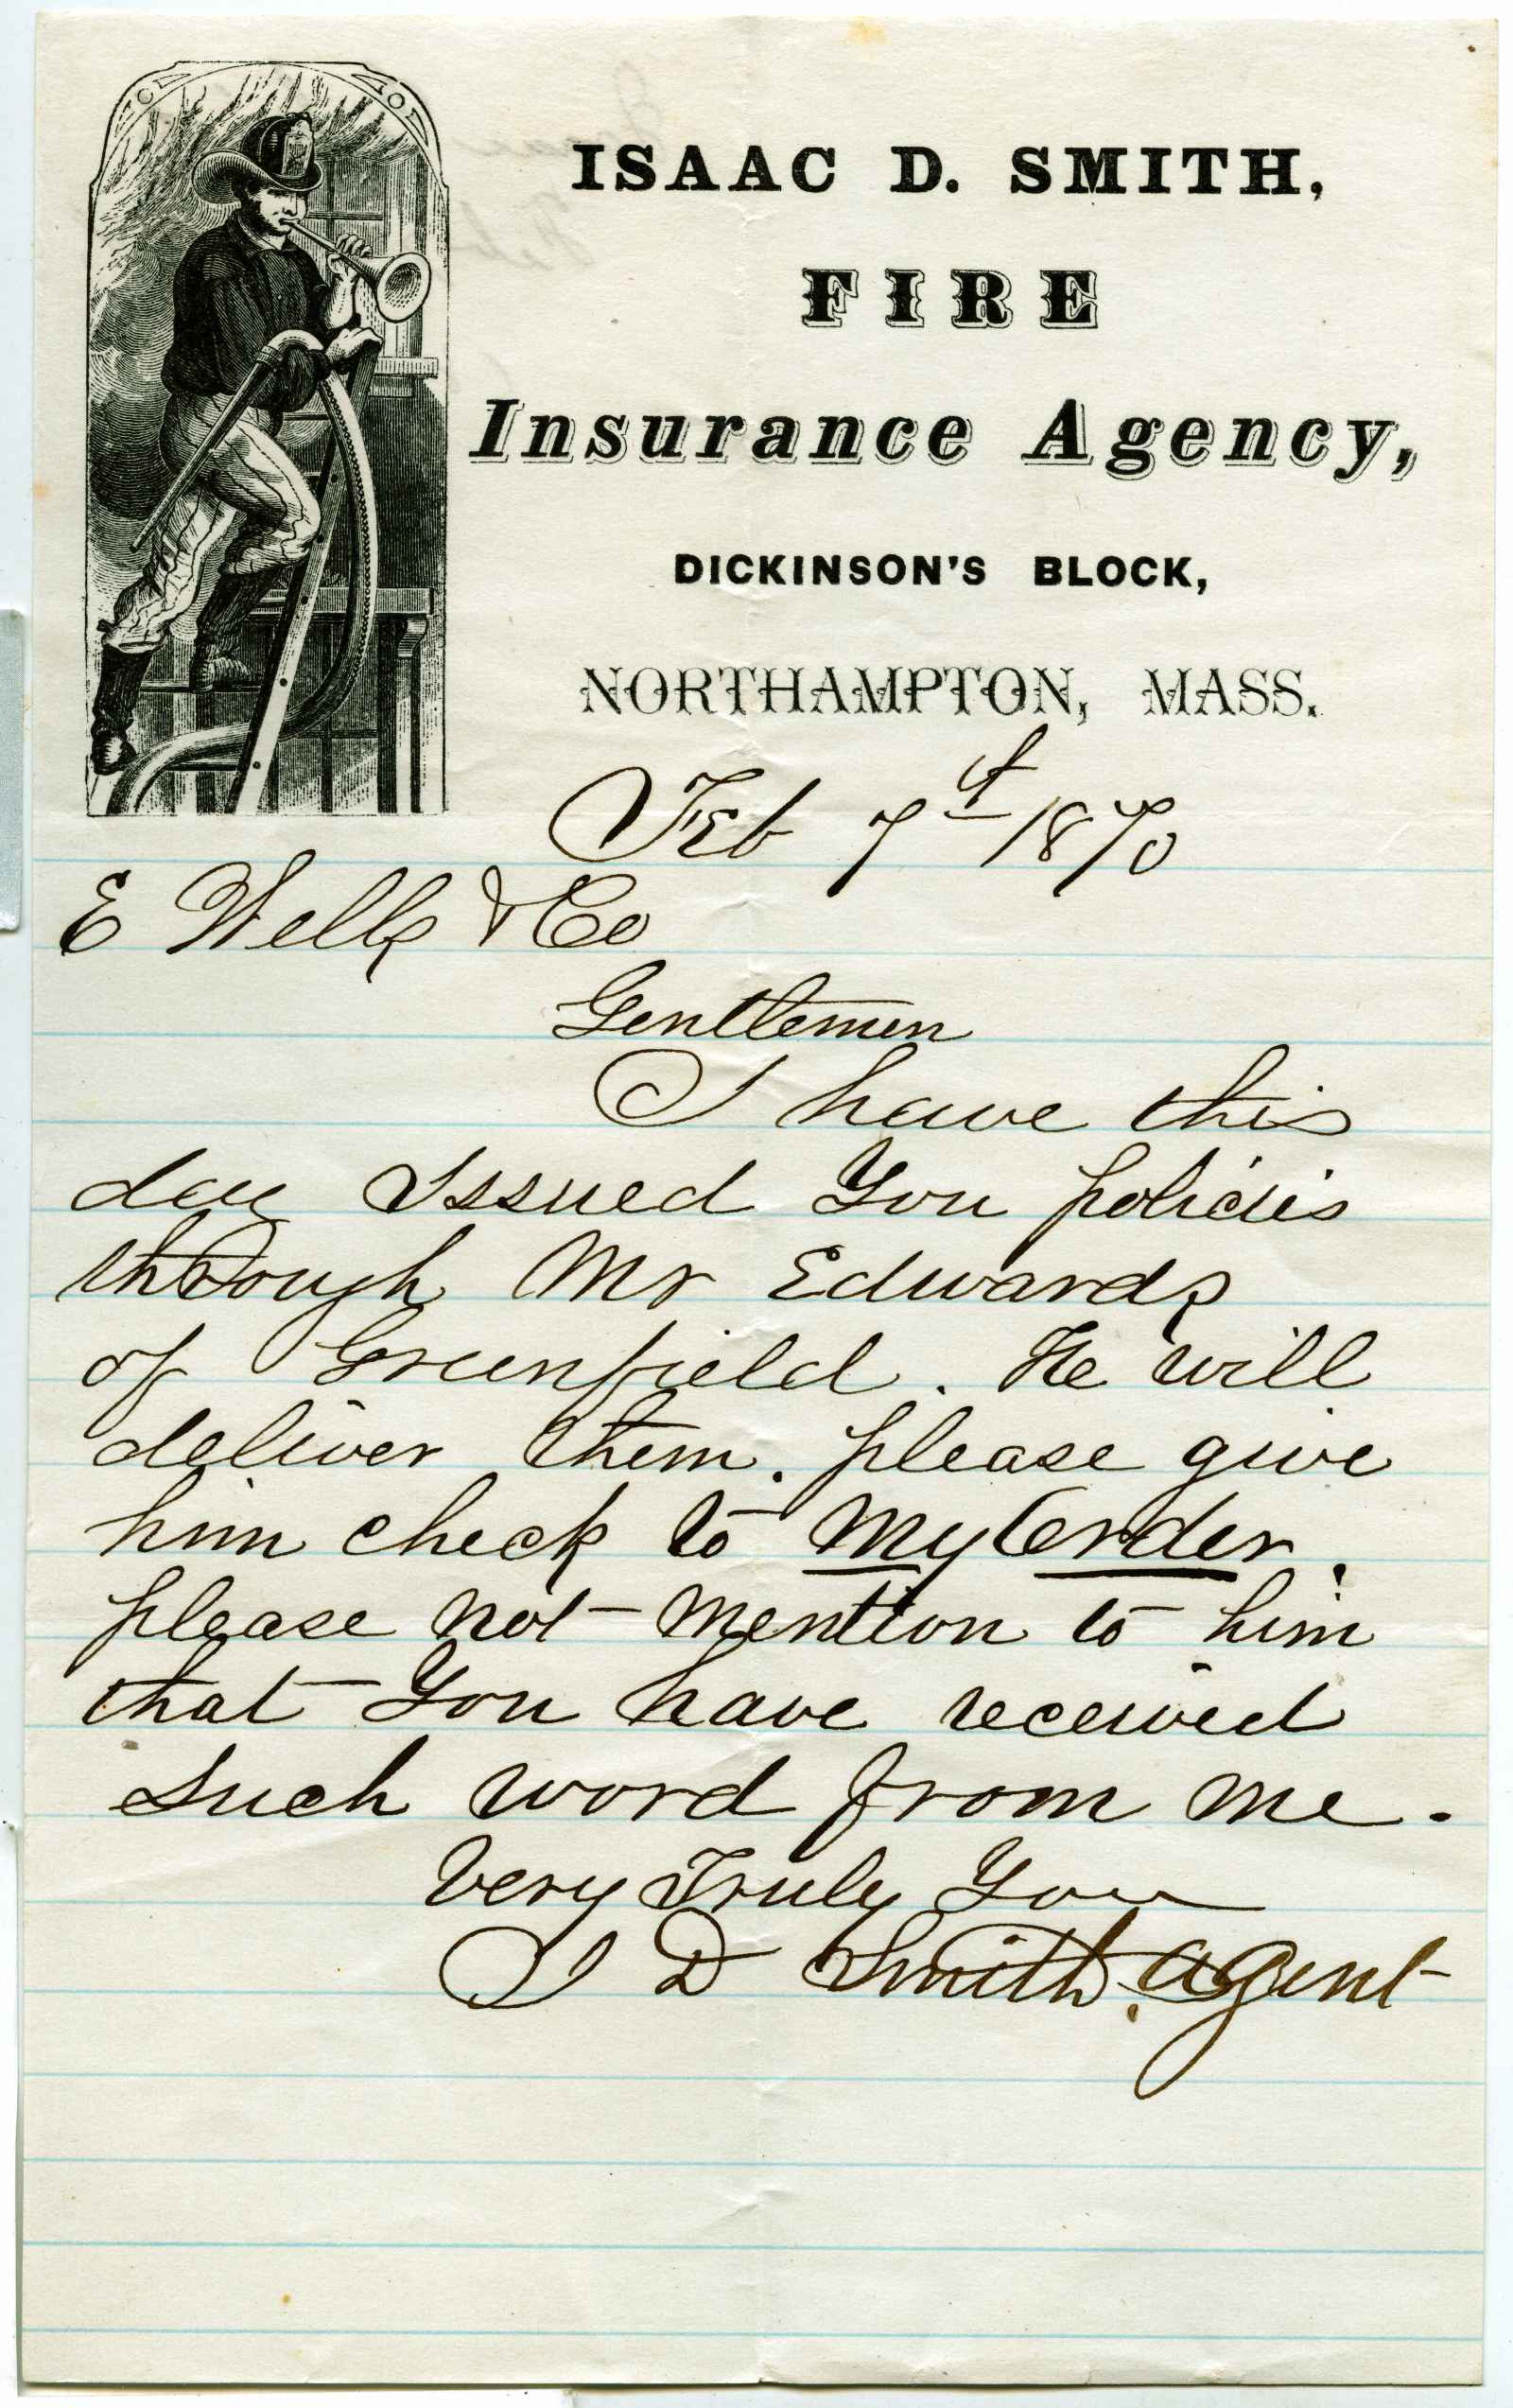 ISAAC D. SMITH,
FIRE
Insurance Agency,
DICKINSON'S BLOCK,
NORTHAMPTON, MASS.
Feb 7th 1870
E Wells & Co
Gentlemen
I have this
day Issued You policies
through Mr Edwards
of Greenfield. He will
deliver them. please give
him check to My Order.
please not mention to him
that You have received
such word from me.
Very Truly You
I D Smith. Agent